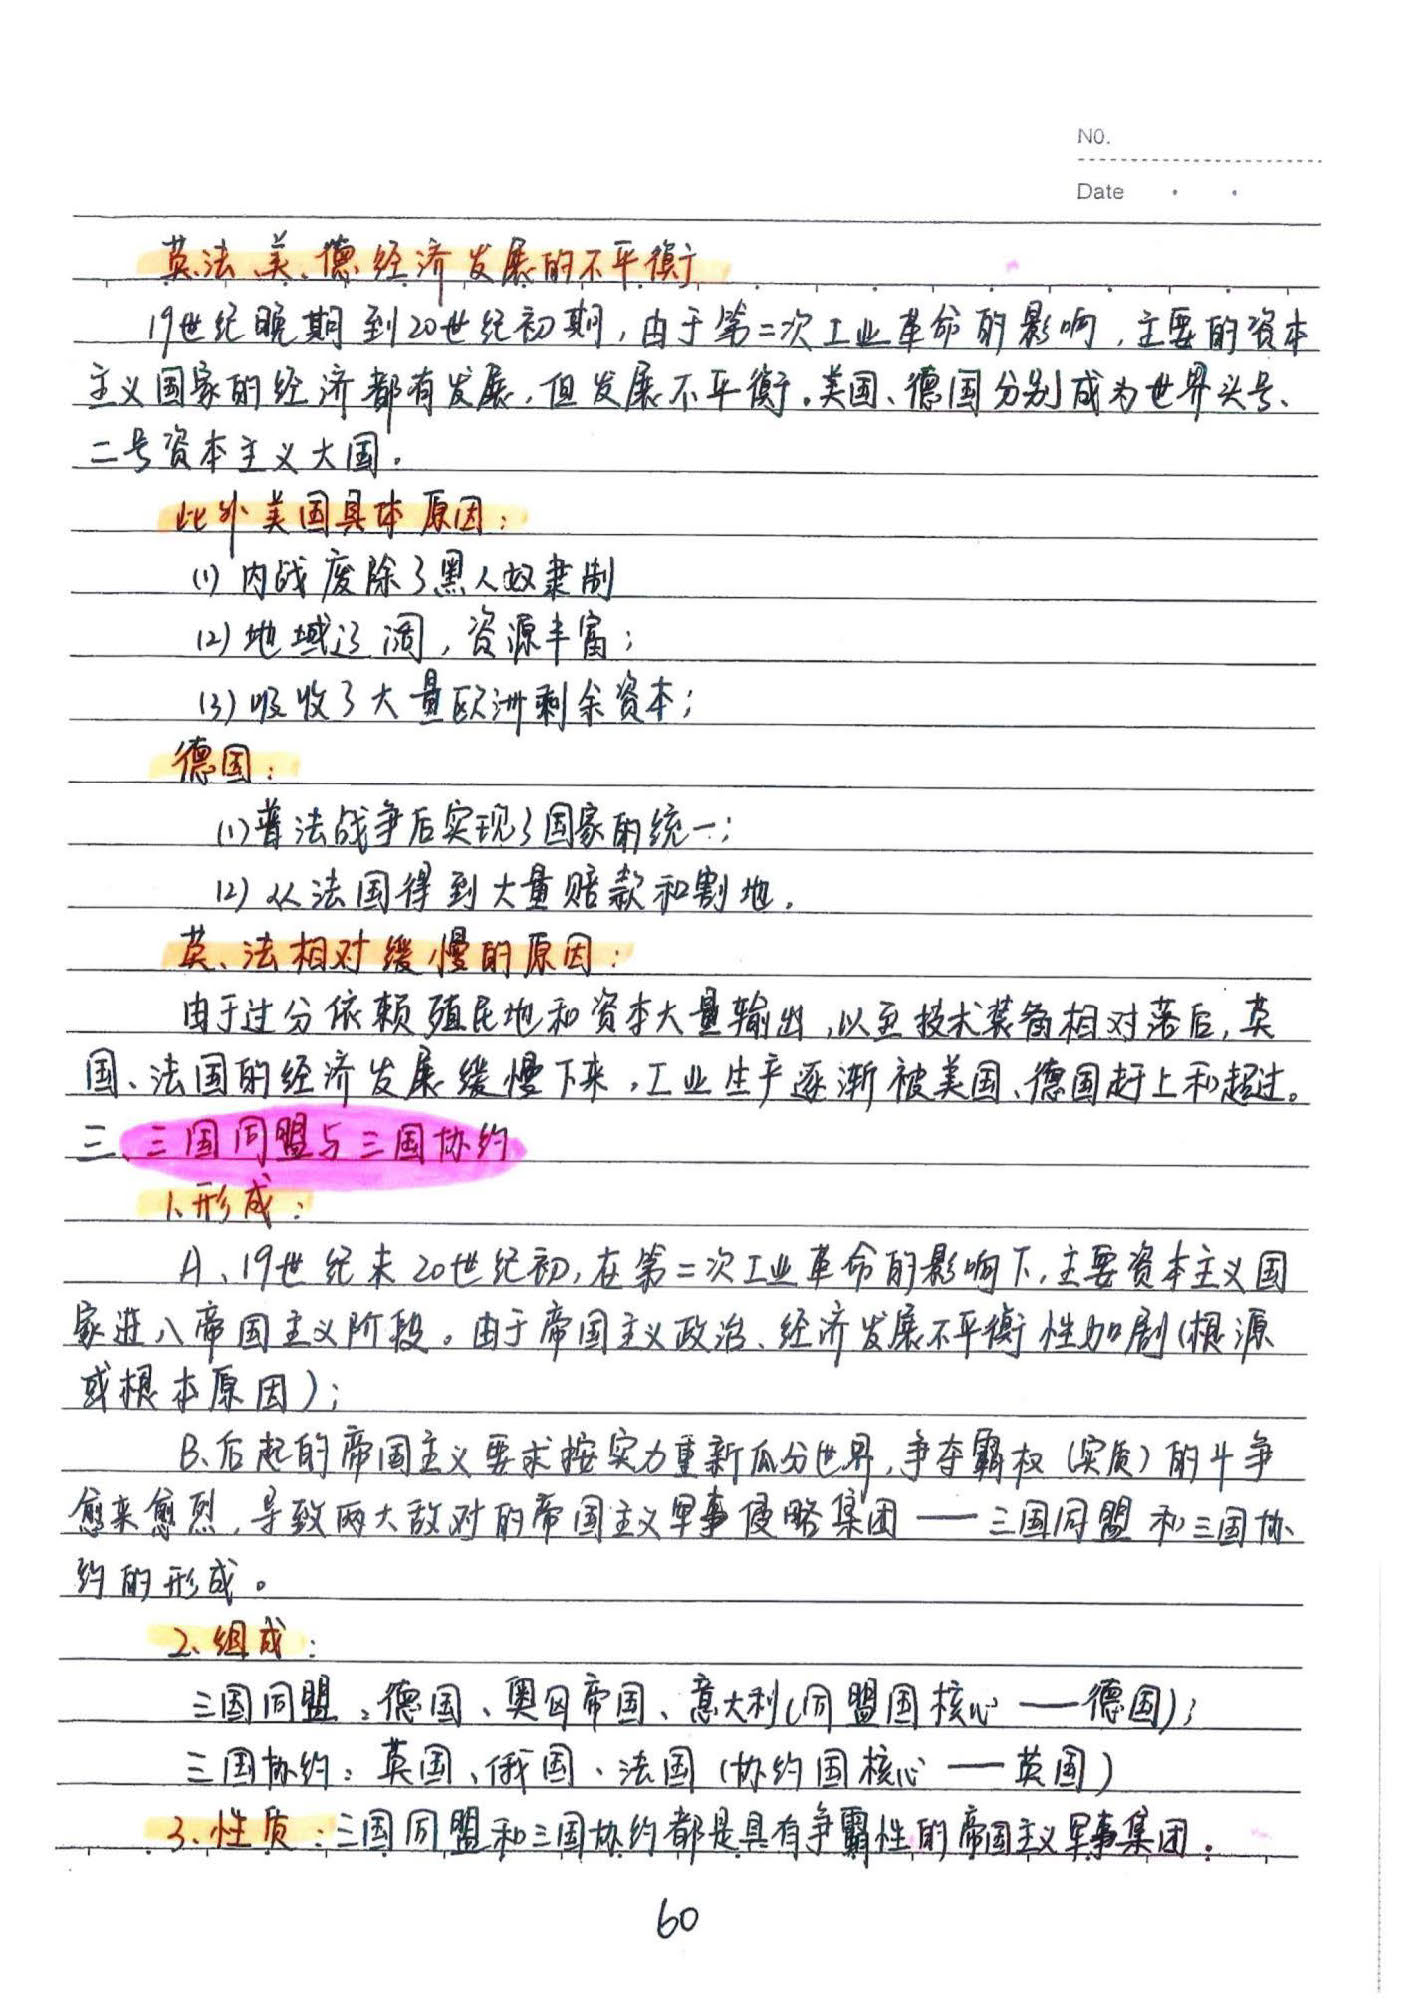 NO.
Date
英、法、美、德经济发展的不平衡
19世纪晚期到20世纪初期,由于第二次工业革命的影响,主要的资本
主义国家的经济都有发展,但发展不平衡。美国、德国分别成为世界头号、
二号资本主义大国。
此外美国具体原因:
(1)内战废除了黑人奴隶制
(2)地域辽阔,资源丰富;
(3)吸收了大量欧洲剩余资本;
德国:
(1)普法战争后实现了国家的统一;
(2)从法国得到大量赔款和割地。
英、法相对缓慢的原因:
由于过分依赖殖民地和资本大量输出,以至技术装备相对落后,英
国、法国的经济发展缓慢下来,工业生产逐渐被美国、德国赶上和超过。
三、三国同盟与三国协约
1、形成:
A、19世纪末20世纪初,在第二次工业革命的影响下,主要资本主义国
家进入帝国主义阶段。由于帝国主义政治、经济发展不平衡性加剧(根源
或根本原因);
B、后起的帝国主义要求按实力重新瓜分世界,争夺霸权(实质)的斗争
愈来愈烈,导致两大敌对的帝国主义军事侵略集团——三国同盟和三国协
约的形成。
2、组成:
三国同盟:德国、奥匈帝国、意大利(同盟国核心——德国);
三国协约:英国、俄国、法国(协约国核心——英国)
3、性质:三国同盟和三国协约都是具有争霸性的帝国主义军事集团。
60